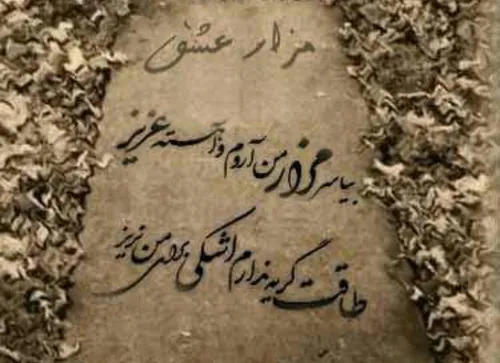 مزار عشق
بیا سر مزار من آروم و آهسته عزیز
طاقت گریه ندارم اشکی برای من نریز